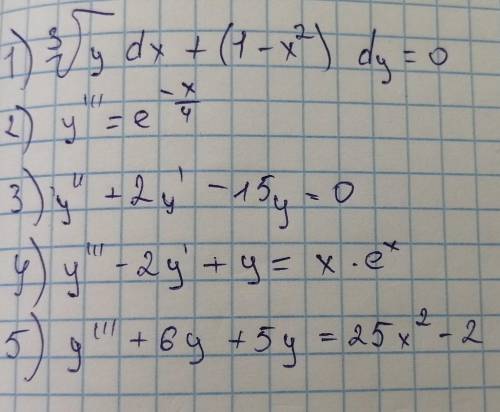 1) ∛y dx + (1 - x²) dy = 0
2) y''' = e^(-x/4)
3) y'' + 2y' - 15y = 0
4) y''' - 2y' + y = x · eˣ
5) y''' + 6y + 5y = 25x² - 2